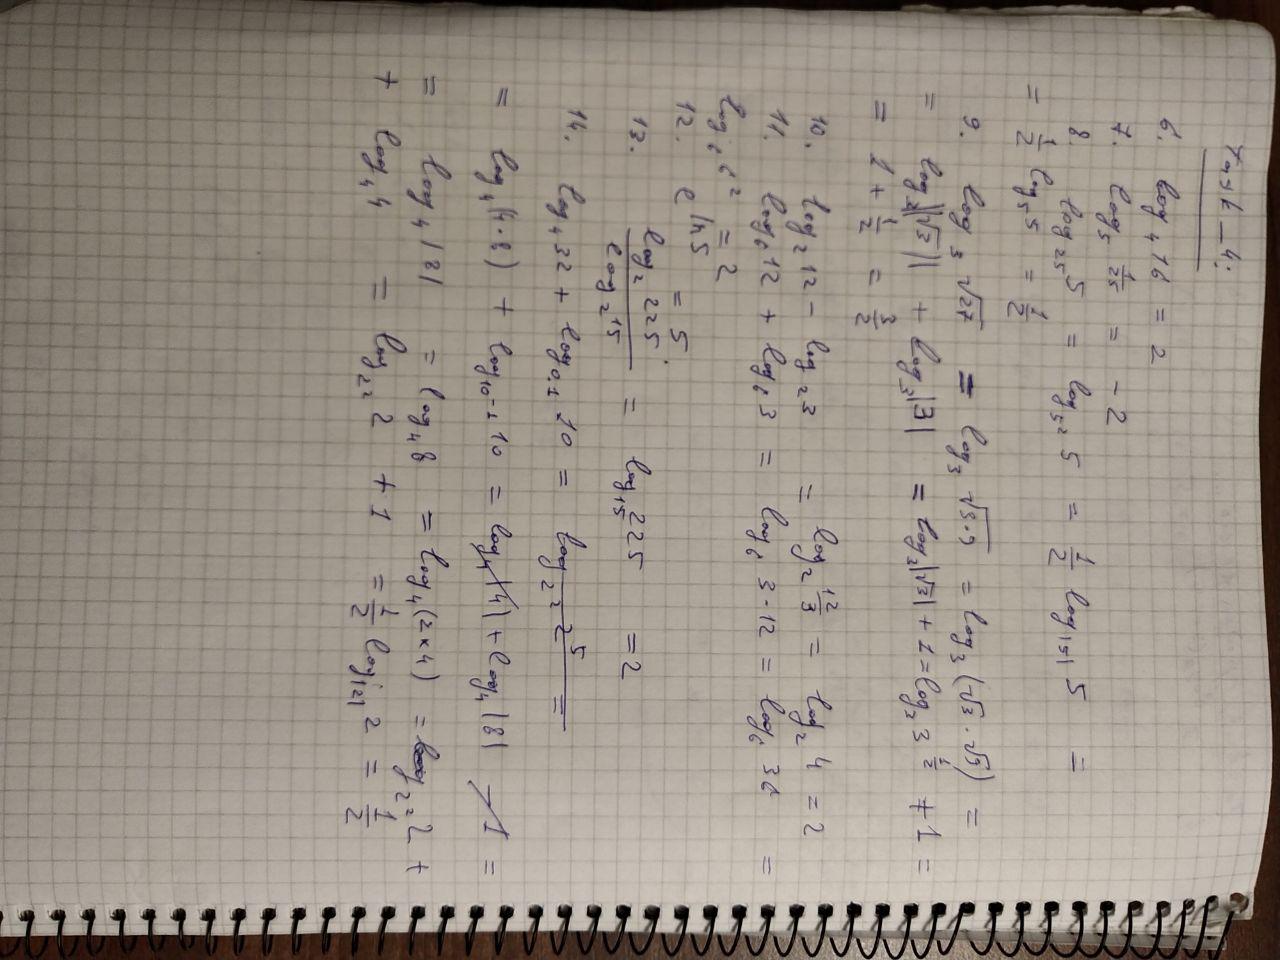 Task_4:
6. log₄ 16 = 2
7. log₅ 1/25 = -2
8. log₂₅ 5 = log₅² 5 = 1/2 log|5| 5 =
= 1/2 log₅ 5 = 1/2
9. log₃ √27 = log₃ √3·9 = log₃ (√3 · √9) =
= log₃|(√3)| + log₃|3| = log₃|√3| + 1 = log₃ 3^1/2 + 1 =
= 1 + 1/2 = 3/2
10. log₂ 12 - log₂ 3 = log₂ 12/3 = log₂ 4 = 2
11. log₆ 12 + log₆ 3 = log₆ 3·12 = log₆ 36 =
log₆ 6² = 2
12. e^ln5 = 5.
13. log₂ 225 / log₂ 15 = log₁₅ 225 = 2
14. log₄ 32 + log₀.₁ 10 = log₂² 2⁵ =
= log₄(4·8) + log₁₀-₁ 10 = log₄|4| + log₄|8| - 1 =
= log₄|8| = log₄ 8 = log₄(2×4) = log₂² 2 +
+ log₄ 4 = log₂² 2 + 1 = 1/2 log|2| 2 = 1/2